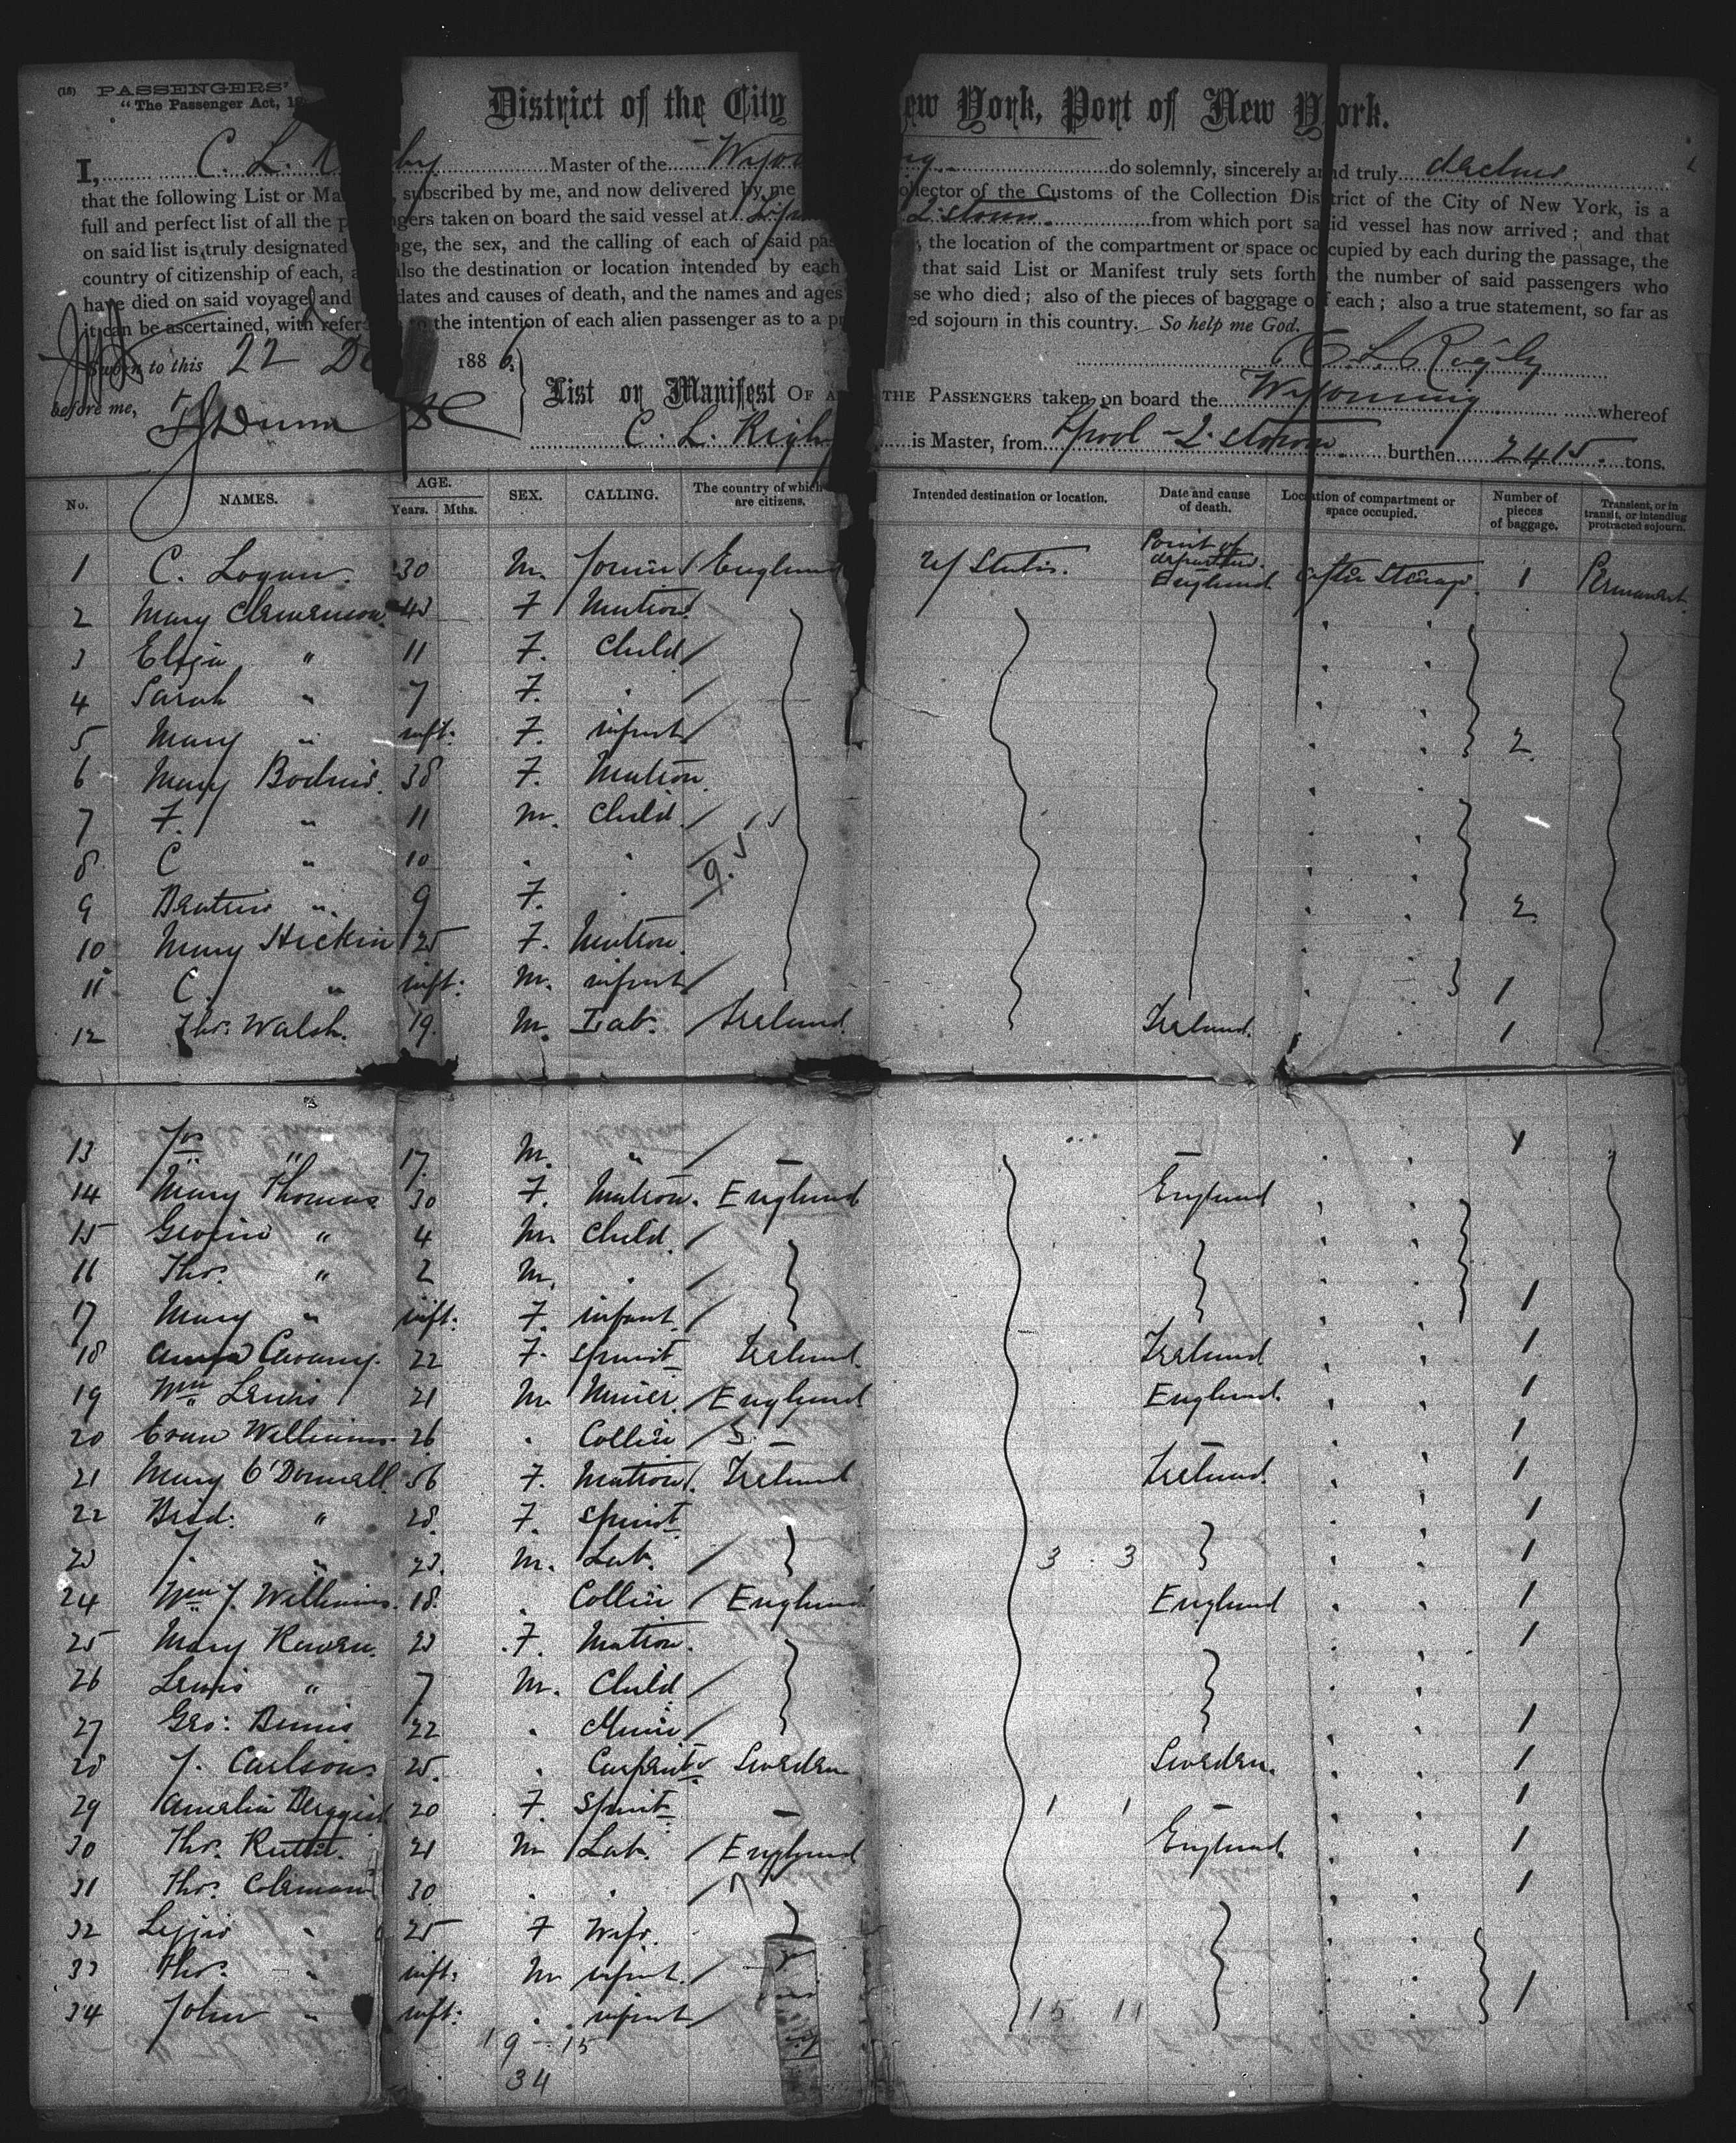 (18) PASSENGERS'
"The Passenger Act, 18
District of the City ew York, Port of New York.
I, C. L. R by Master of the Wyom ng do solemnly, sincerely and truly declare
that the following List or Ma , subscribed by me, and now delivered by me ollector of the Customs of the Collection District of the City of New York, is a
full and perfect list of all the p ngers taken on board the said vessel at L'pool Q. stown from which port said vessel has now arrived; and that
on said list is truly designated age, the sex, and the calling of each of said pas , the location of the compartment or space occupied by each during the passage, the
country of citizenship of each, a also the destination or location intended by each that said List or Manifest truly sets forth the number of said passengers who
have died on said voyage, and dates and causes of death, and the names and ages se who died; also of the pieces of baggage of each; also a true statement, so far as
it can be ascertained, with refer to the intention of each alien passenger as to a pr ed sojourn in this country. So help me God.
C. L. Rigby
Sworn to this 22 De 1886
before me,
List or Manifest OF A THE PASSENGERS taken on board the Wyoming whereof
C. L. Rigby is Master, from L'pool - Q. stown burthen 2415 tons.
No. NAMES. AGE. Years. Mths. SEX. CALLING. The country of which are citizens. Intended destination or location. Date and cause of death. Location of compartment or space occupied. Number of pieces of baggage. Transient, or in transit, or intending protracted sojourn.
Point of departure.
1 C. Logan. 30 M. Joiner England U/ States. England After Steerage 1 Permanent.
2 Mary 43 F Matron
3 Eliza " 11 F. Child
4 Sarah " 7 F. "
5 Mary " inft: F. infant 2
6 Mary 38 F. Matron
7 F. " 11 M. Child
8 C " 10 " "
9 Beatrice " 9 F. " 2
10 Mary Hickin 25 F. Matron
11 C. " inft: M. infant 1
12 Thos. Walsh. 19. M. Lab. Ireland Ireland. 1
13 Jas " 17. M. " – – 1
14 Mary Thomas 30 F. Matron. England England
15 " 4 M. Child
16 Thos. " 2 M. "
17 Mary " inft: F. infant 1
18 22 F. Spinst Ireland. Ireland 1
19 Wm Lewis 21 M. Miner. England England. 1
20 Evan Williams 26 " Collier – – 1
21 Mary O'Donnell 56 F. Matron. Ireland Ireland. 1
22 Brid: " 28. F. Spinst 1
23 J. " 23. M. Lab. 3 3 1
24 Wm J. Williams. 18. " Collier England England 1
25 Mary 23 F. Matron. 1
26 Lewis " 7 M. Child
27 Geo: 22 " Miner 1
28 J. Carlson 25. " Carpentr Sweden Sweden. 1
29 Amelia Bergqist 20 F. Spinst – 1 1 – 1
30 Thos. 21 M Lab. England England. 1
31 Thos. Coleman 30 " " 1
32 Lizzie " 25 F Wife.
33 Thos. " inft: M infant.
34 John " inft: " infant 15 11 1
19 – 15
34